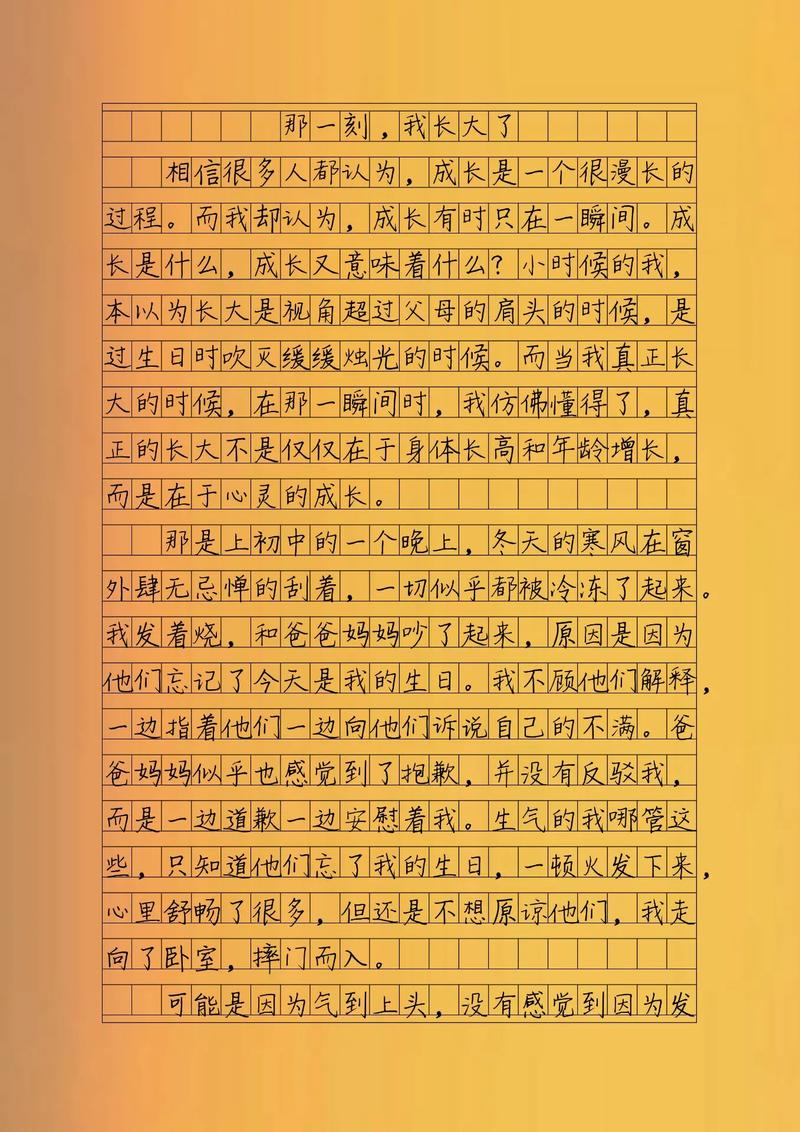 那一刻，我长大了
相信很多人都认为，成长是一个很漫长的
过程。而我却认为，成长有时只在一瞬间。成
长是什么，成长又意味着什么？小时候的我，
本以为长大是视角超过父母的肩头的时候，是
过生日时吹灭缓缓烛光的时候。而当我真正长
大的时候，在那一瞬间时，我仿佛懂得了，真
正的长大不是仅仅在于身体长高和年龄增长，
而是在于心灵的成长。
那是上初中的一个晚上，冬天的寒风在窗
外肆无忌惮的刮着，一切似乎都被冷冻了起来。
我发着烧，和爸爸妈妈吵了起来，原因是因为
他们忘记了今天是我的生日。我不顾他们解释，
一边指着他们一边向他们诉说自己的不满。爸
爸妈妈似乎也感觉到了抱歉，并没有反驳我，
而是一边道歉一边安慰着我。生气的我哪管这
些，只知道他们忘了我的生日，一顿火发下来，
心里舒畅了很多，但还是不想原谅他们，我走
向了卧室，摔门而入。
可能是因为气到上头，没有感觉到因为发